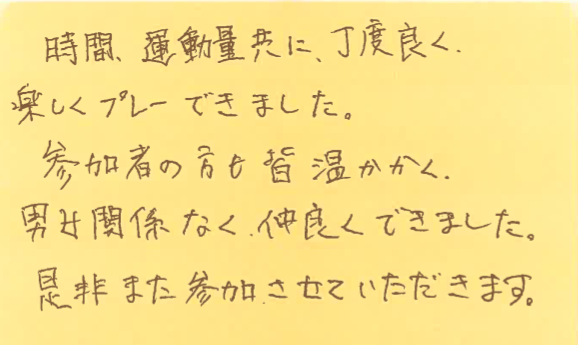 時間、運動量共に、丁度良く、
楽しくプレーできました。
参加者の方も皆温かかく、
男女関係なく、仲良くできました。
是非また参加させていただきます。